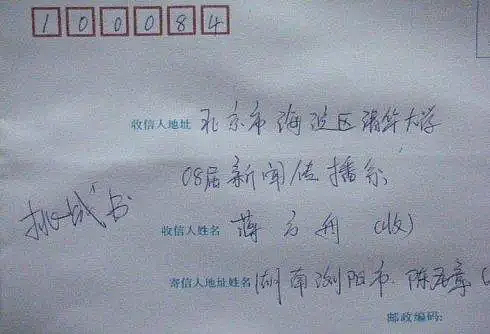 100084
收信人地址 北京市海淀区清华大学
08届新闻传播系
挑战书
收信人姓名 蒋方舟 (收)
寄信人地址姓名 湖南浏阳市 陈
邮政编码: